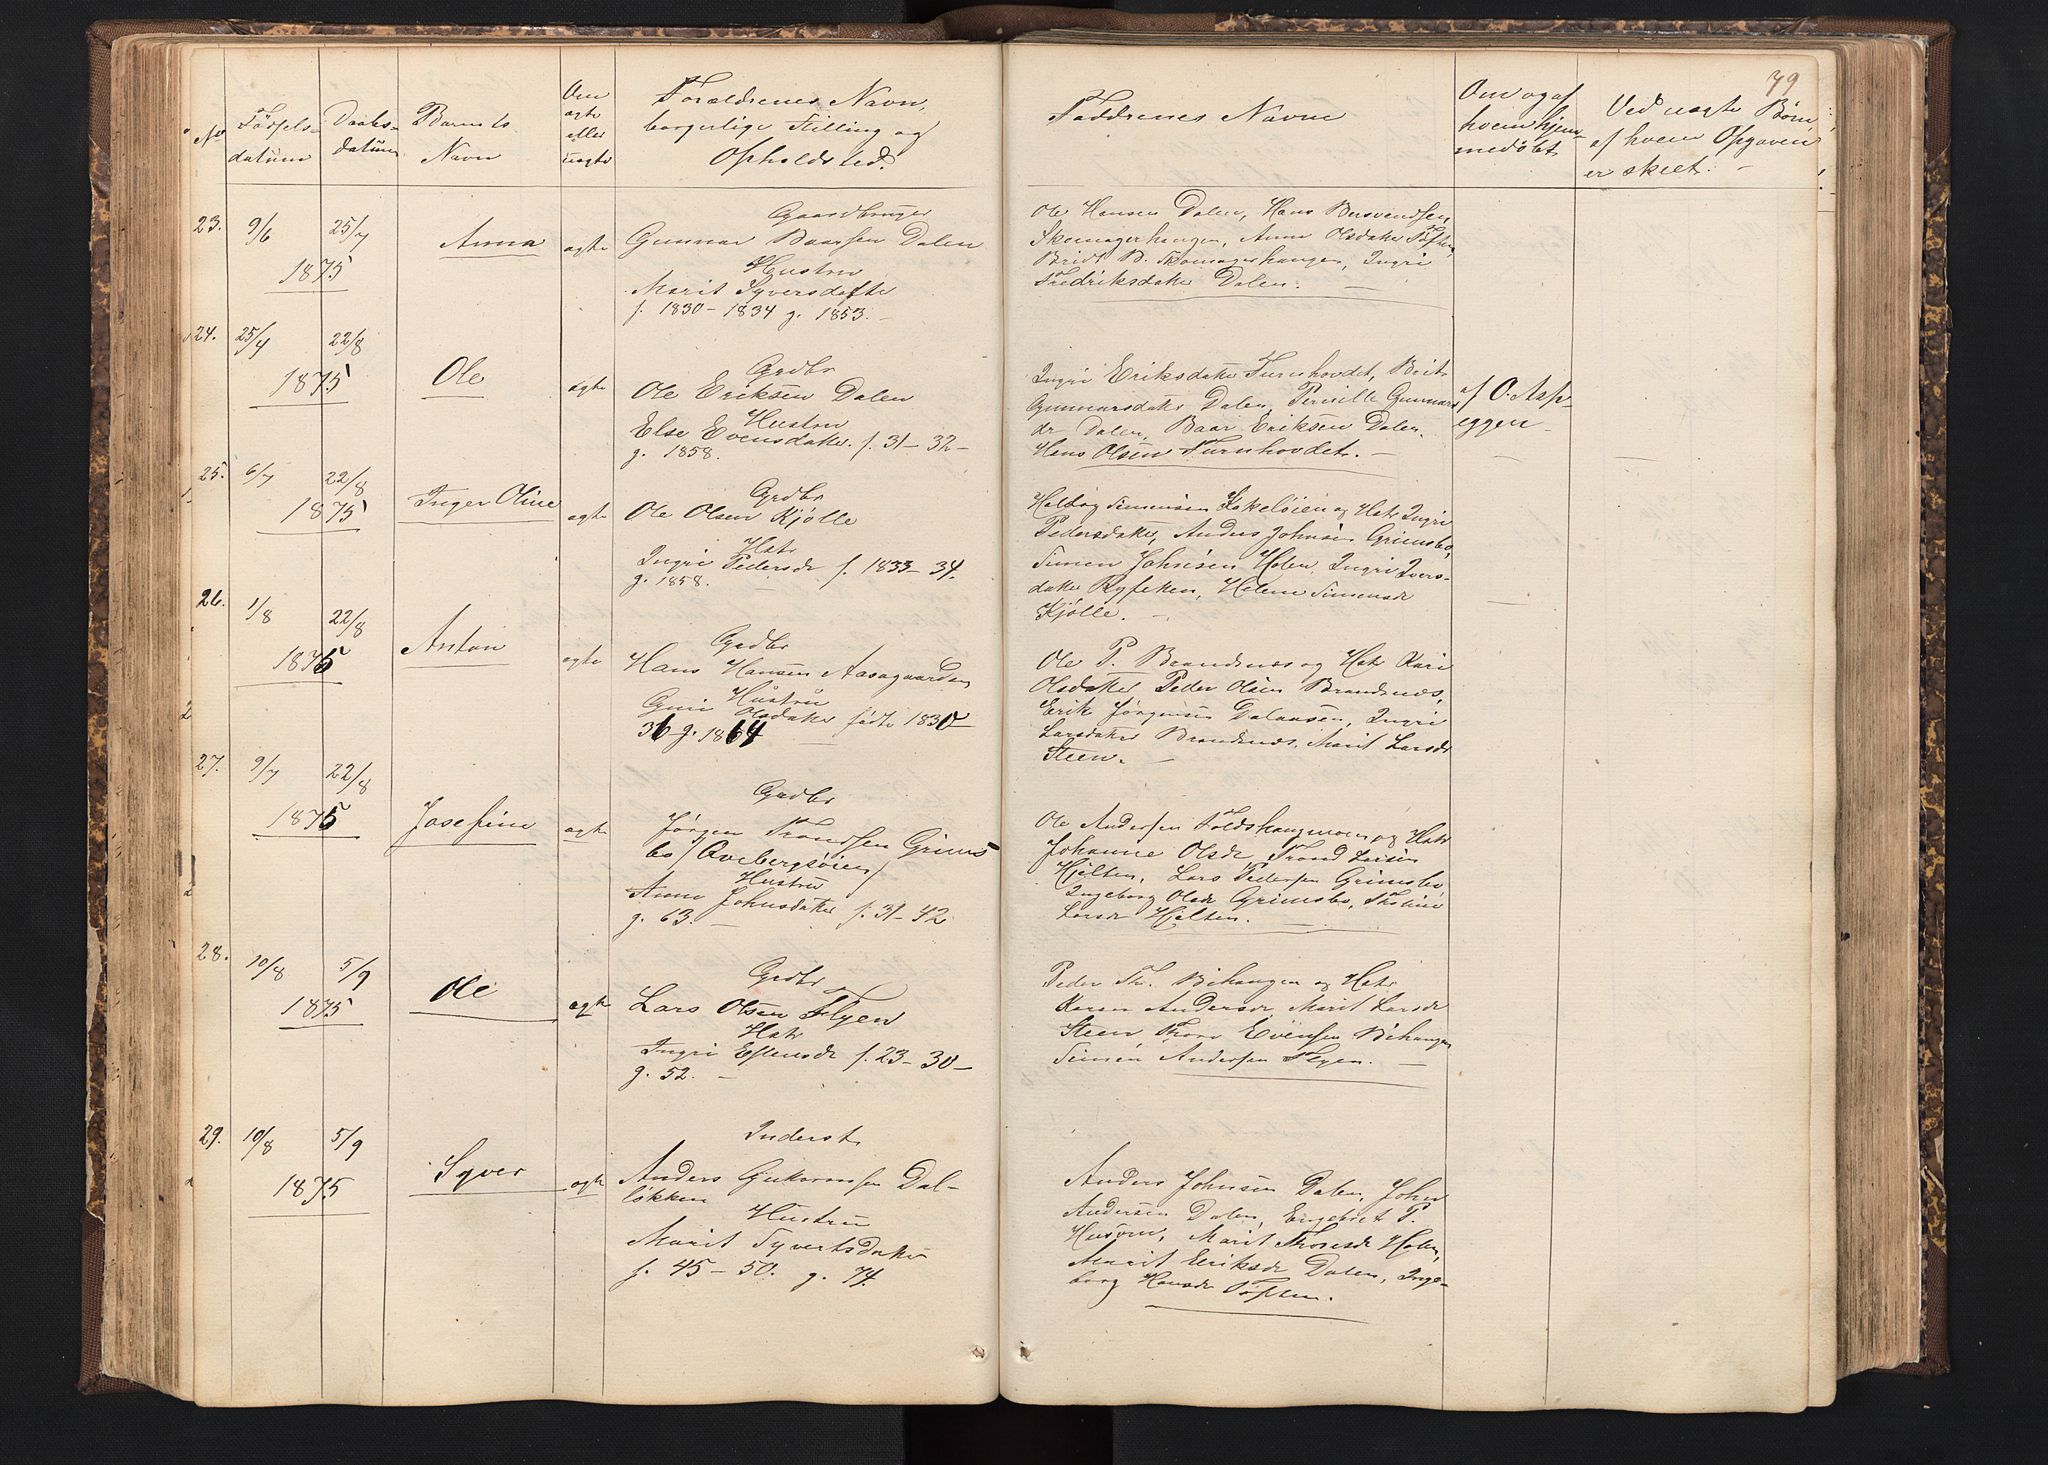 79
No
Födsels-
datum
Daabs-
datum
Barnets
Navn
Om
ægte
eller
uægte
Forældrenes Navn,
borgerlige Stilling og
Opholdsted.
Faddrenes Navne
Om og af
hvem hjem-
medøbt
Ved uægte Børn,
af hvem Opgaven
er skeet.
23. 9/6 25/7
1875
Anna
ægte
Gaardbruger
Gunnar Baarsen Dalen
Hustru
Marit Syversdatte
f. 1830 - 1834 g. 1853.
Ole Hansen Dalen, Hans
Skomagerhaugen, Anne Olsdatter
Brit B. Skomagerhaugen, Ingri
Fredriksdatter Dalen.
24. 25/4 22/8
1875
Ole
ægte
Grdbr
Ole Eriksen Dalen
Hustru
Else Evensdatter. f. 31 - 32 -
g. 1858.
Ingri Eriksdatter Turnhovdet, Brit
Gunnarsdatter Dalen, Pernille Gunnars
dr Dalen, Baar Eriksen Dalen.
Hans Olsen Turnhovdet.
af O. Aasp-
eggen
25. 6/7 22/8
1875
Inger Oline
ægte
Grdbr
Ole Olsen Kjölle
Hstr
Ingri Pedersdr f. 1833 - 34.
g. 1858.
Simensen og Hstr Ingri
Pedersdatter, Anders Johnsen Grimsbo,
Simen Johnsen Holen, Ingri Ivers-
datter Ryfeken, Helene Simensdr
Kjølle.
26. 1/8 22/8
1875
Anton
ægte
Grdbr
Hans Hansen Aasagaarden
Hustru
Guri Olsdatter födte 1830 -
36 g. 1864
Ole P. Brandsnæs og Hstr Kari
Olsdatter Peder Olsen Brandsnæs,
Erik Jørgensen Dalaasen, Ingri
Larsdatter Brandsnæs, Marit Larsdr
Steen.
27. 9/7 22/8
1875
Josefine
ægte
Grdbr
Jørgen Trondsen Grims
bo / Qvebergsöien /
Hustru
Anne Johnsdatter f. 31 - 42
g. 63.
Ole Andersen Foldshaugmoen og Hstr
Johanne Olsdr, Trond Larsen
Hjelten, Lars Pedersen Grimsbo,
Ingeborg Olsdr Grimsbo,
Larsdr Hjelten.
28. 10/8 5/9
1875
Ole
ægte
Grdbr
Lars Olsen Flyen
Hstr
Ingri Estensdr f. 23 - 30 -
g. 52.
Peder Th. Bihaugen og Hstr
Karen Andersdr Marit Larsdr
Steen Thor Evensen Bihaugen
Simen Andersen Flyen.
29. 10/8 5/9
1875
Syver
ægte
Inderst
Anders Guttormsen Dal-
løkken
Hustru
Marit Syvertsdatter
f. 45 - 50. g. 74.
Anders Johnsen Dalen, John
Andersen Dalen, Engebret P.
Husom, Marit Thoresdr Holen,
Marit Eriksdr Dalen, Inge-
borg Hansdr Toften.